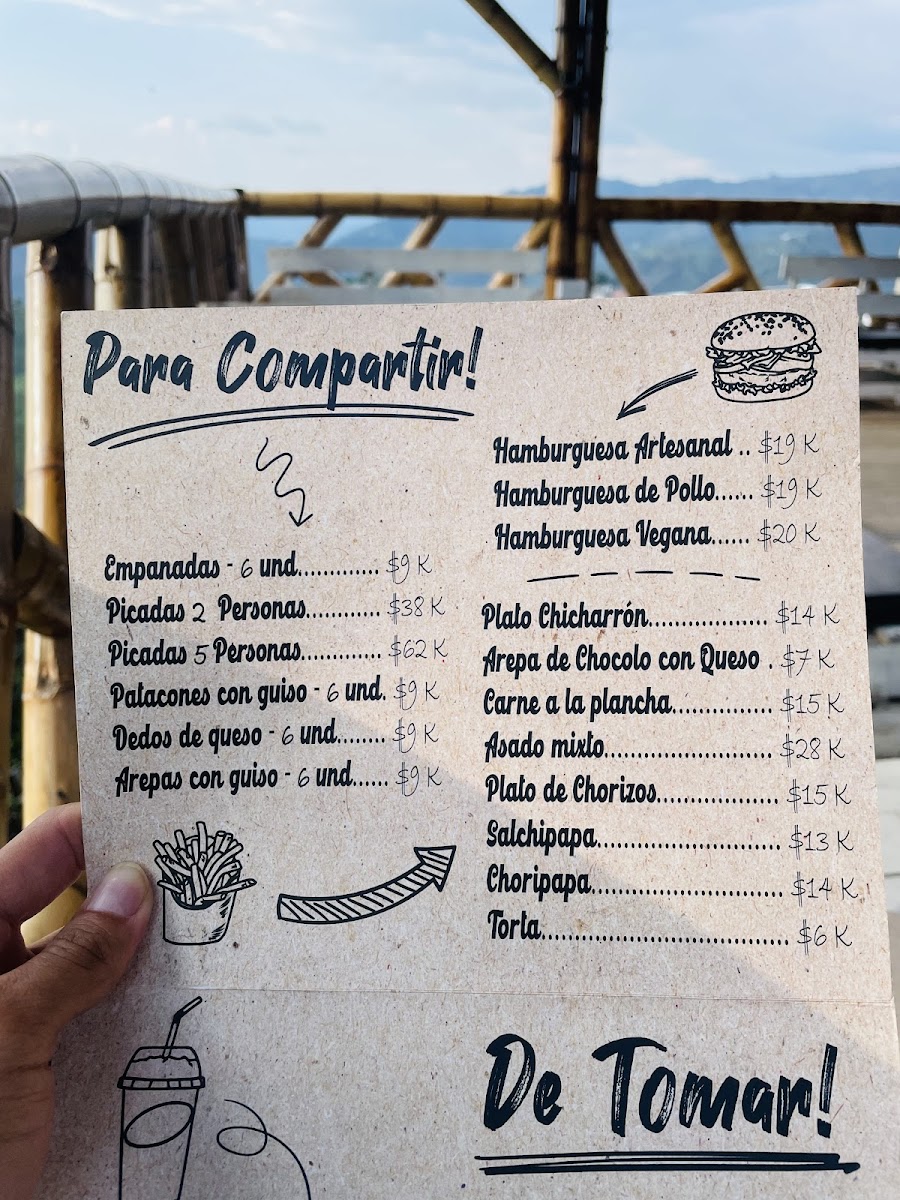 Para Compartir!
Empanadas - 6 und............. $9 K
Picadas 2 Personas............ $38 K
Picadas 5 Personas............. $62 K
Patacones con guiso - 6 und. $9 K
Dedos de queso - 6 und........ $9 K
Arepas con guiso - 6 und...... $9 K
Hamburguesa Artesanal .. $19 K
Hamburguesa de Pollo...... $19 K
Hamburguesa Vegana...... $20 K
Plato Chicharrón................... $14 K
Arepa de Chocolo con Queso . $7 K
Carne a la plancha................ $15 K
Asado mixto........................... $28 K
Plato de Chorizos................... $15 K
Salchipapa.............................. $13 K
Choripapa............................... $14 K
Torta........................................ $6 K
De Tomar!